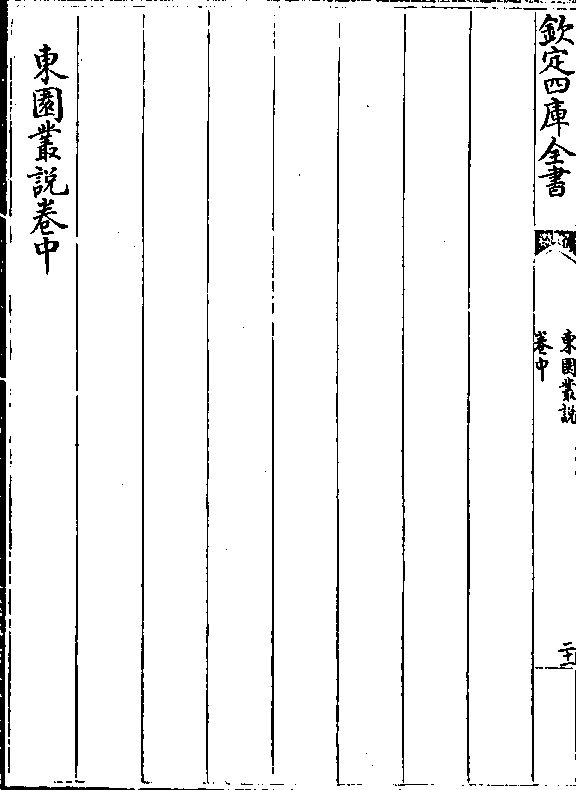 欽定四庫全書
東園叢說
卷中
二十一
東園叢說卷中